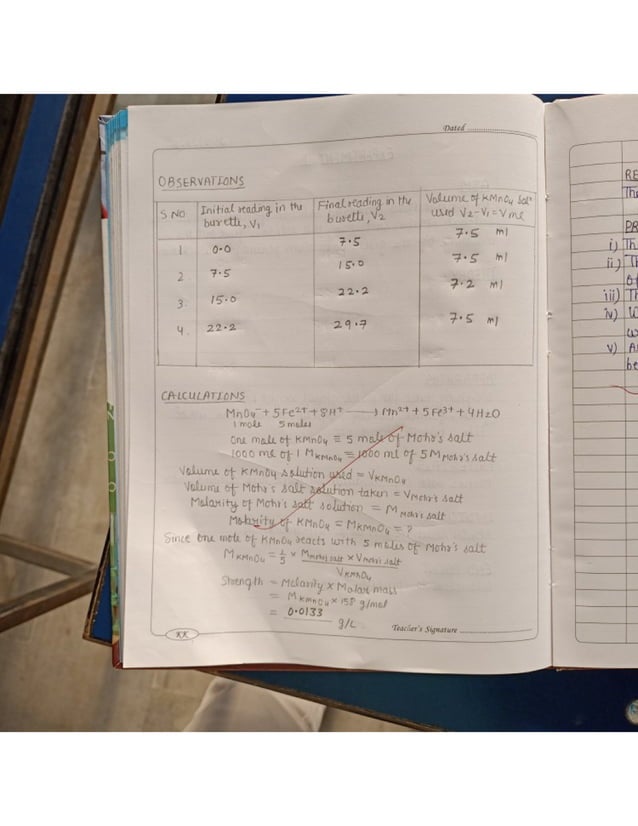 Dated
OBSERVATIONS
S NO Initial reading in the burette, V1 Final reading in the burette, V2 Volume of KMnO4 Sol" used V2-V1 = V ml
1. 0.0 7.5 7.5 ml
2. 7.5 15.0 7.5 ml
3. 15.0 22.2 7.2 ml
4. 22.2 29.7 7.5 ml
CALCULATIONS
MnO4⁻ + 5Fe²⁺ + 8H⁺ ⟶ Mn²⁺ + 5Fe³⁺ + 4H2O
1 mole 5 moles
One mole of KMnO4 ≡ 5 mole of Mohr's salt
1000 ml of 1 M KMnO4 ≡ 1000 ml of 5M Mohr's salt
Volume of KMnO4 solution used = VKMnO4
Volume of Mohr's salt solution taken = V Mohr's salt
Molarity of Mohr's salt solution = M Mohr's salt
Molarity of KMnO4 = MKMnO4 = ?
Since one mole of KMnO4 reacts with 5 moles of Mohr's salt
MKMnO4 = 1/5 × M Mohr's salt × V Mohr's salt / VKMnO4
Strength = Molarity × Molar mass
= MKMnO4 × 158 g/mol
= 0.0133 g/L
KK Teacher's Signature
RE
The
PR
i) Th
ii) Th
of
iii) Th
iv) W
w
v) A
be